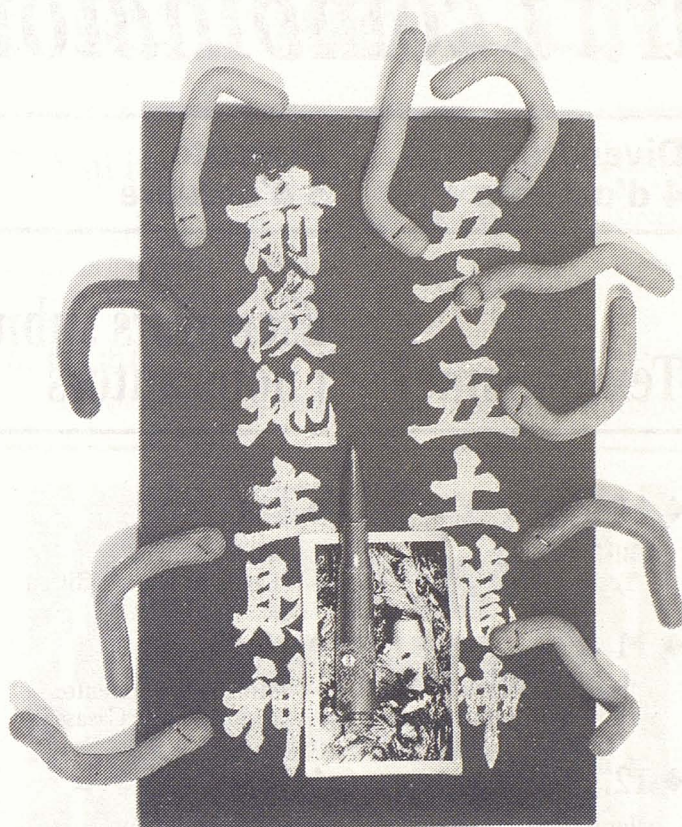 五方五土龍神
前後地主財神